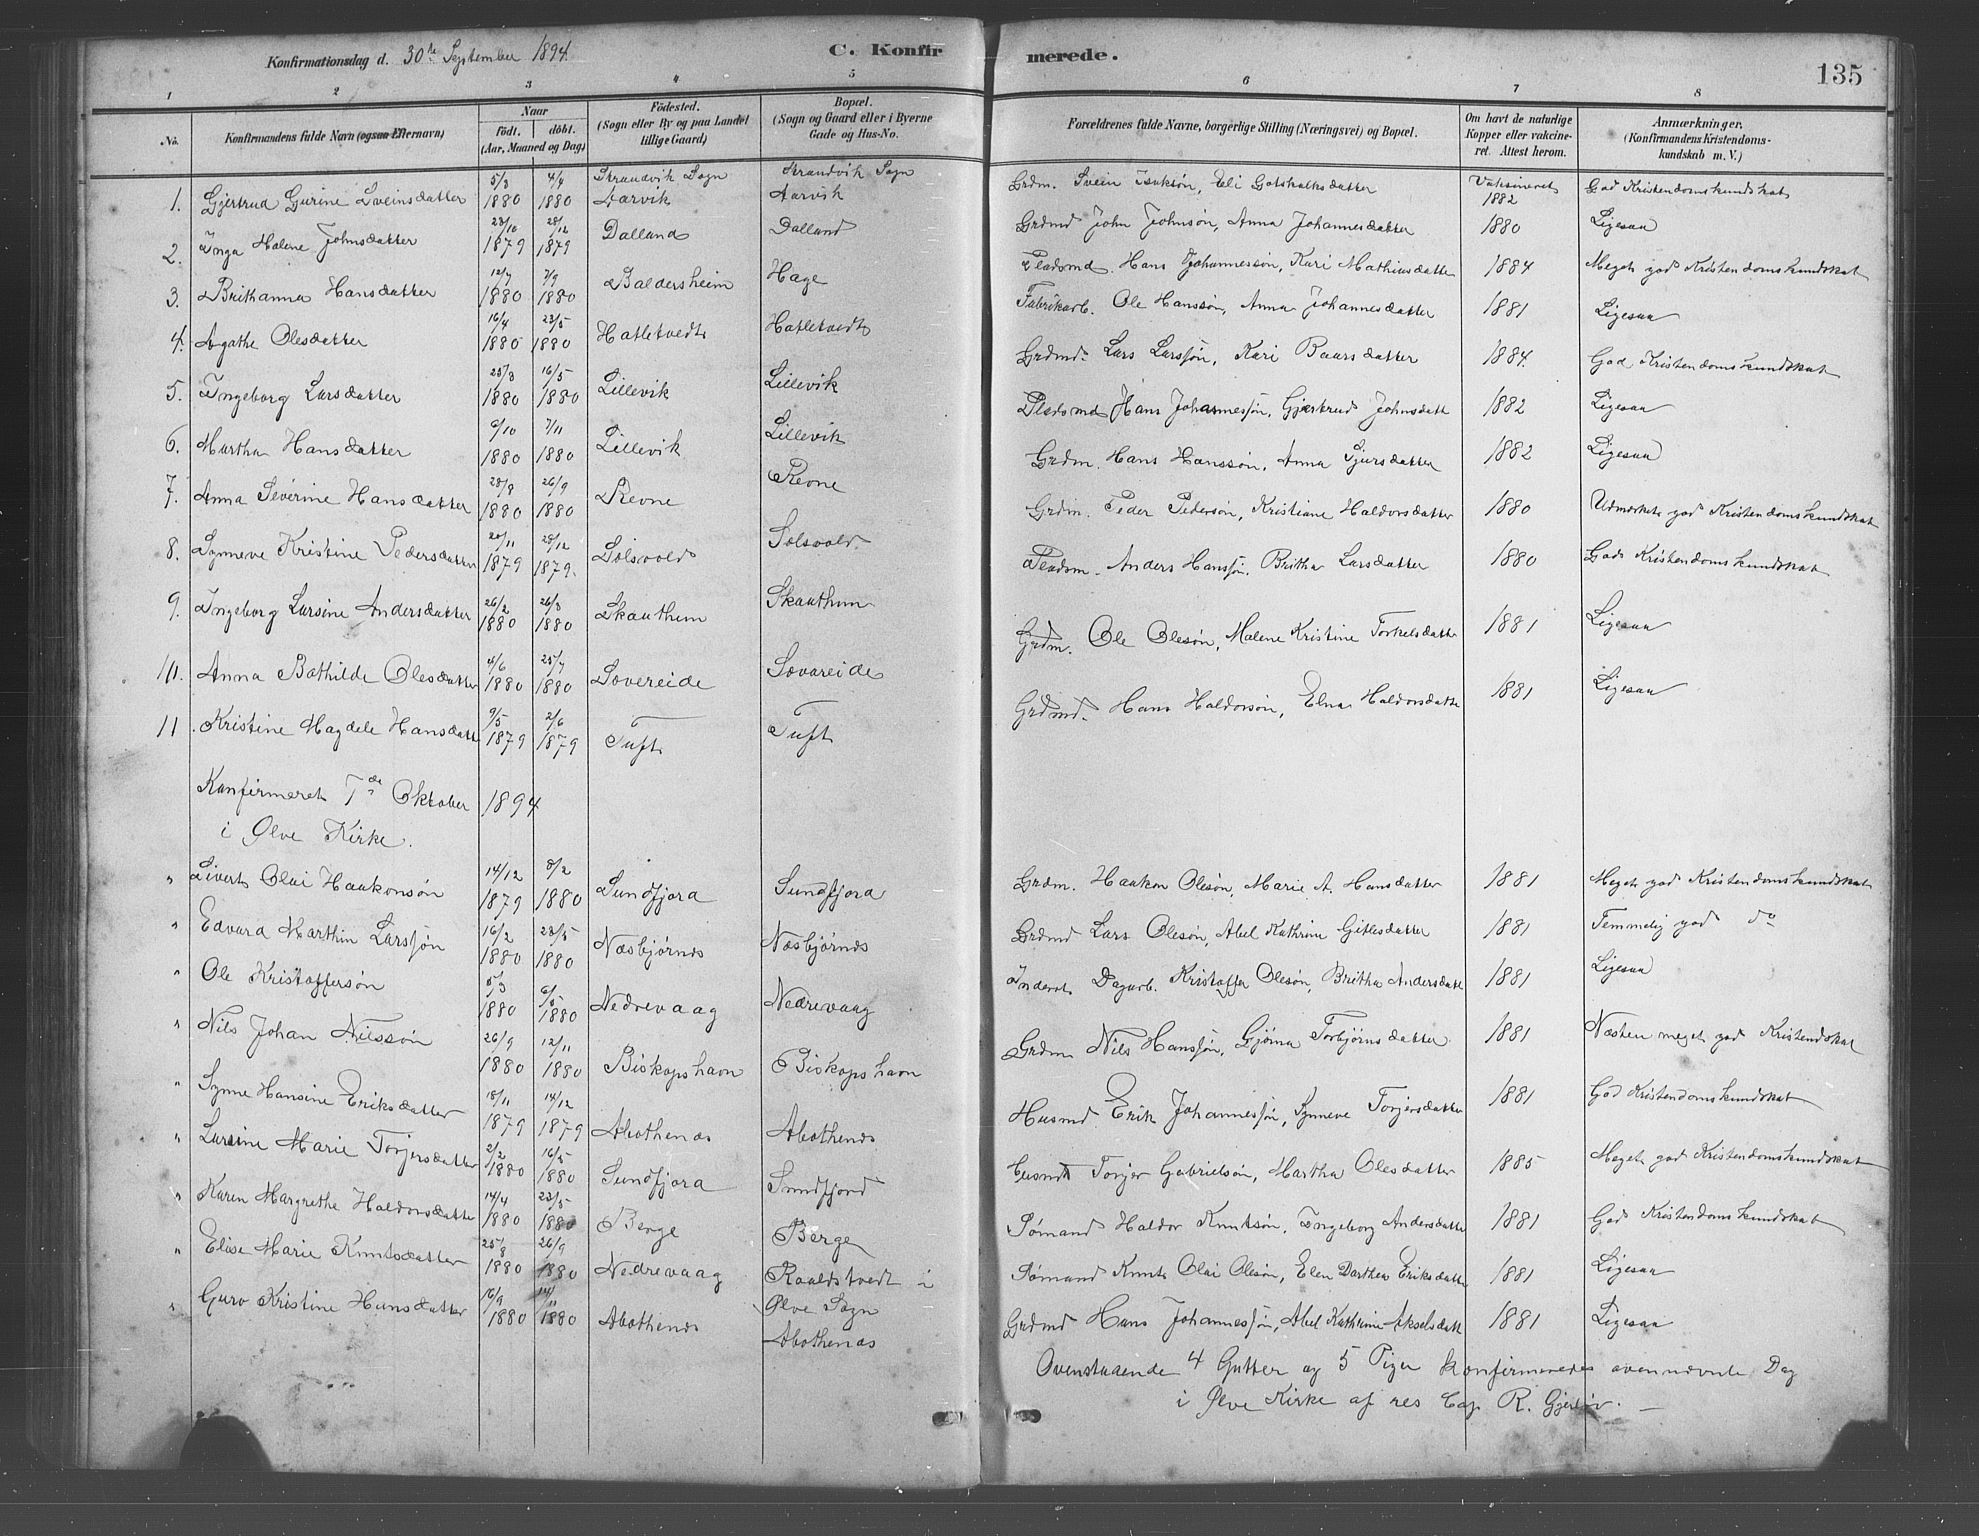 Konfirmationsdag d. 30te September 1894. C. Konfirmerede. 135
1 2 3 4 5 6 7 8
No. Konfirmandens fulde Navn (ogsaa Efternavn) Naar födt. döbt. (Aar, Maaned og Dag) Födested. (Sogn eller By og paa Landet tillige Gaard) Bopæl. (Sogn og Gaard eller i Byerne Gade og Hus-No. Forældrenes fulde Navne, borgerlige Stilling (Næringsvei) og Bopæl. Om havt de naturlige Kopper eller vakcineret. Attest herom. Anmærkninger. (Konfirmandens Kristendomskundskab m. V.)
1. Gjertrud Gurine Sveinsdatter 5/3 1880 4/4 1880 Strandvik Sogn Aarvik Strandvik Sogn Aarvik Grdm. Svein Isaksøn, Eli Gotskalksdatter Vaksineret 1882 God Kristendomskundskab
2. Inga Malene Johnsdatter 23/10 1879 28/12 1879 Dalland Dalland Grdmd John Johnsøn, Anna Johannesdatter 1880 Ligesaa
3. Brithanna Hansdatter 12/7 1880 7/9 1880 Baldersheim Hage Pladsmd. Hans Johannessøn, Kari Mathiasdatter 1884 Meget god Kristendomskundskab
4. Agathe Olesdatter 16/4 1880 23/5 1880 Hatletvedt Hatletvedt Fabrikarb. Ole Hanssøn, Anna Johannesdatter 1881 Ligesaa
5. Ingeborg Larsdatter 23/3 1880 16/5 1880 Lillevik Lillevik Grdmd. Lars Larssøn, Kari Baarsdatter 1884. God Kristendomskundskab
6. Martha Hansdatter 9/10 1880 7/11 1880 Lillevik Lillevik Pladsmd Hans Johannessøn, Gjertrud Johnsdatt 1882 Ligesaa
7. Anna Severine Hansdatter 28/8 1880 26/9 1880 Revne Revne Grdm. Hans Hanssøn, Anna Sjursdatter 1882 Ligesaa
8. Synneve Kristine Pedersdatter 20/11 1879 28/12 1879. Solsvold Solsvold Grdm. Peder Pedersøn, Kristiane Haldorsdatter 1880 Udmerket god Kristendomskundskab
9. Ingeborg Larsine Andersdatter 26/2 1880 26/3 1880 Skauthum Skauthum Pladsm. Anders Hanssøn, Britha Larsdatter 1880 God Kristendomskundskab
10. Anna Bothilde Olesdatter 4/6 1880 25/7 1880 Sovereide Sovareide Grdm. Ole Olesøn, Malene Kristine Torkelsdatter 1881 Ligesaa
11. Kristine Magdele Hansdatt 9/5 1879 2/6 1879 Tuft Tuft Grdmd. Hans Haldorsøn, Elna Haldorsdatter 1881 Ligesaa
Konfirmeret 7de Oktober 1894
i Ølve Kirke.
" Sivert Olai Haakonsøn 14/12 1879 8/2 1880 Sundfjora Sundfjora Grdm. Haakon Olesøn, Marie A. Hansdatter 1881 Meget god Kristendomskundskab
" Edvard Marthin Larssøn 16/2 1880 23/5 1880 Næsbjørnes Næsbjørnes Grdmd Lars Olesøn, Abel Kathrine Gitlesdatter 1881 Temmelig god do
" Ole Kristoffersøn 5/3 1880 6/5 1880 Nedrevaag Nedrevaag Inderst Dagarb. Kristoffer Olesøn, Britha Andersdatt 1881 Ligesaa
" Nils Johan Nilssøn 26/9 1880 12/11 1880 Biskopshavn Biskopshavn Grdm Nils Hanssøn, Gjøma Torbjørnsdatter 1881 Næsten meget god Kristendskab
" Synne Hansine Eriksdatter 18/11 1879 14/12 1879 Abothenes Abothenes Husmd. Erik Johannessøn, Synneve Torjersdatter 1881 God Kristendomskundskab
" Larsine Marie Torjersdatter 2/2 1880 16/5 1880 Sundfjora Sundfjord Husmd Torjer Gabrielsøn, Martha Olesdatter 1885 Meget god Kristendomskundskab
" Karen Margrethe Haldorsdatter 14/4 1880 23/5 1880 Berge Berge Sømand Haldor Knutsøn, Ingeborg Andersdatter 1881 God Kristendomskundskab
" Elise Marie Knutsdatter 25/8 1880 26/9 1880 Nedrevaag Roaldstvedt i Ølve Sogn Sømand Knut Olai Olesøn, Elen Darthea Eriksdatter 1881 Ligesaa
" Guro Kristine Hansdatter 16/9 1880 14/11 1880 Abothenes Abothenes Grdmd Hans Johannessøn, Abel Kathrine Akselsdatt 1881 Ligesaa
Ovenstaaende 4 Gutter og 5 Piger konfirmeredes ovennævnte Dag
i Ølve Kirke af res Cap R. Gjerløv. —